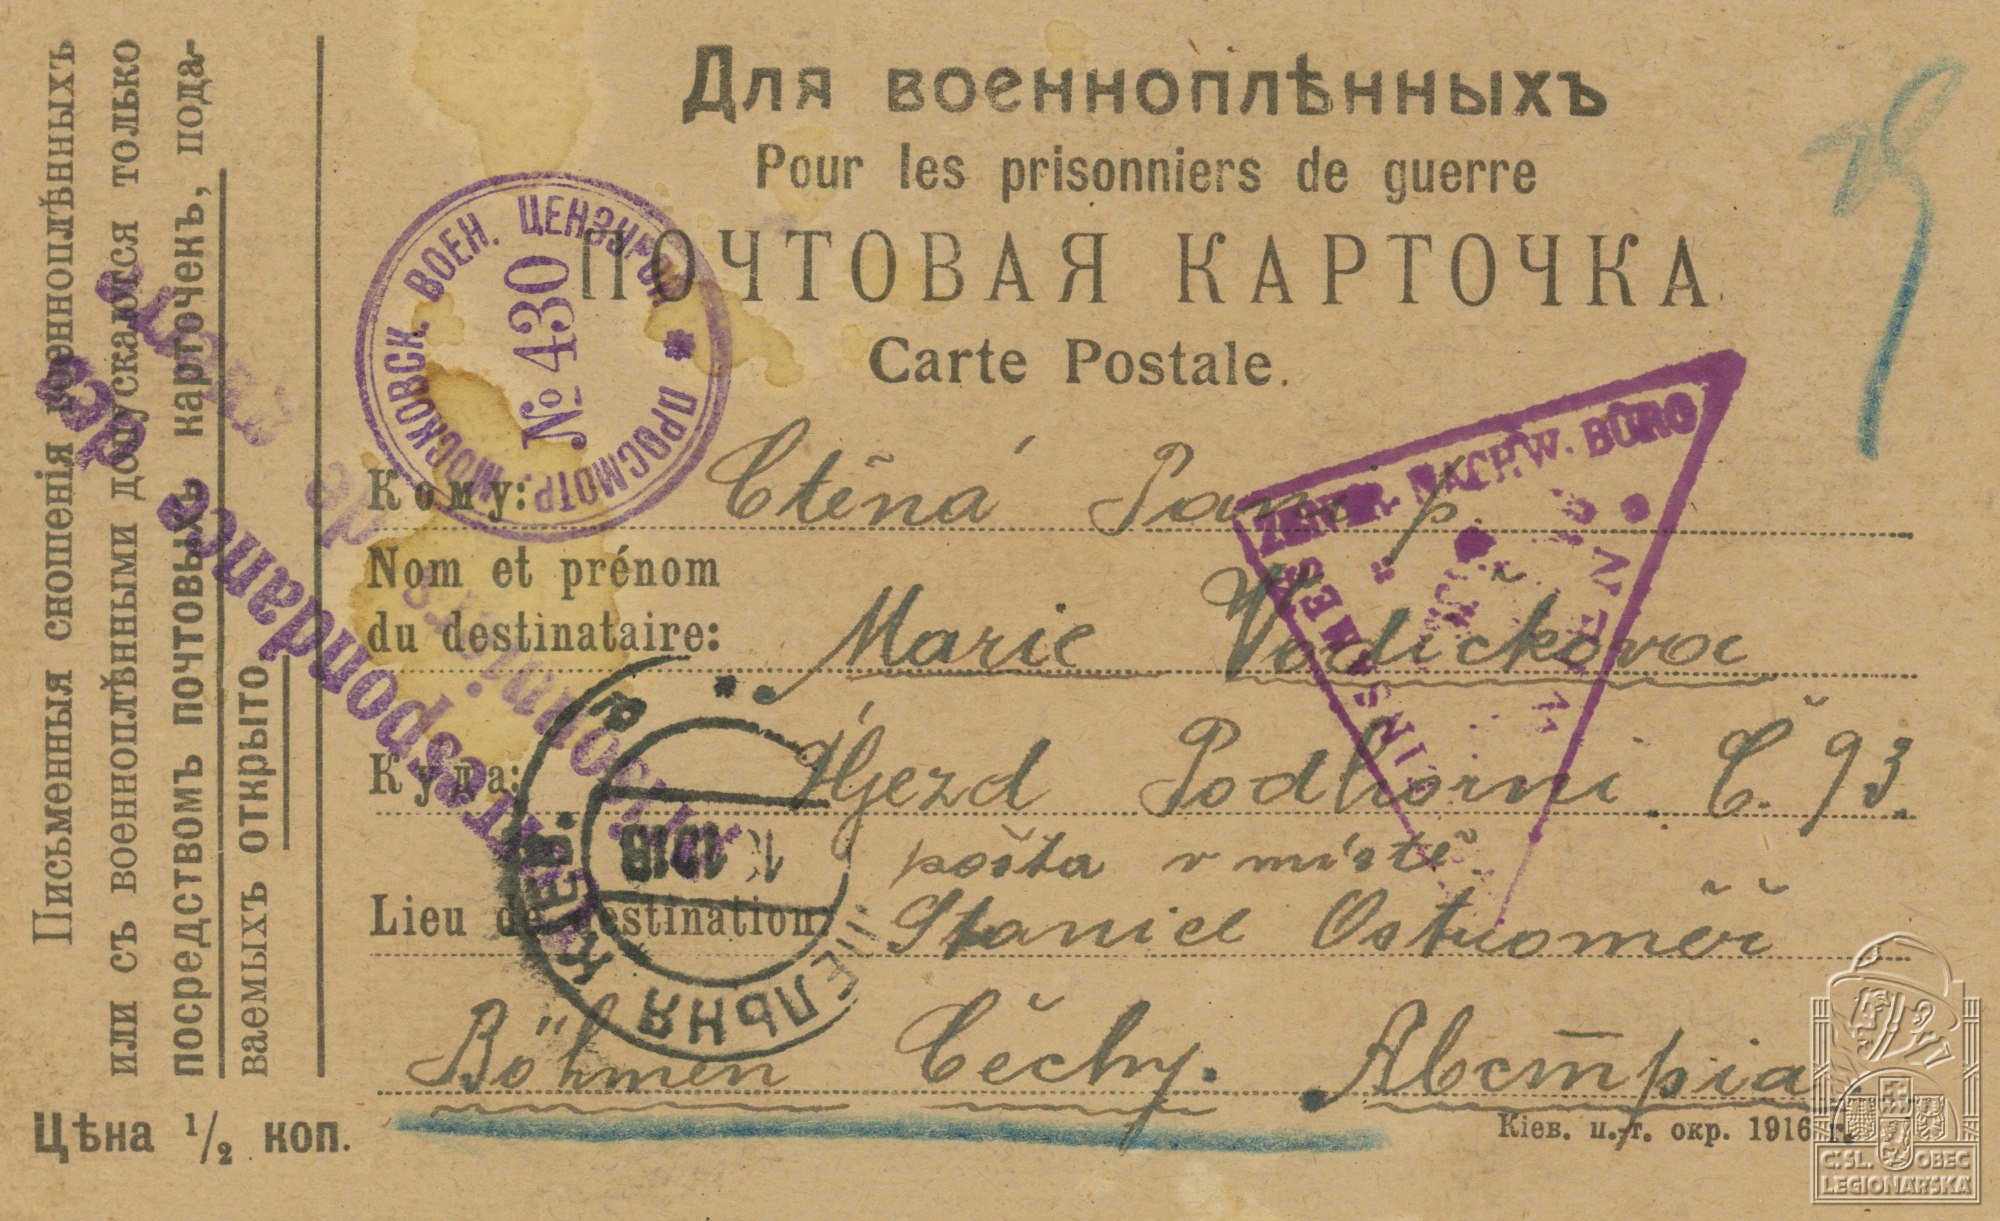 Для военноплѣнныхъ
Pour les prisonniers de guerre
ПОЧТОВАЯ КАРТОЧКА
Carte Postale.
Письменныя сношенія военноплѣнныхъ
или съ военноплѣнными допускаются только
посредствомъ почтовыхъ карточекъ, пода-
ваемыхъ открыто
Цѣна ½ коп.
МОСКОВСК. ВОЕН. ЦЕНЗУРОЙ * ПРОСМОТР.
№ 430
Кому: Ctěná Paní p.
Nom et prénom
du destinataire: Marie Vodičkova
Куда: Újezd Podhorni Č. 93.
pošta v místě
Lieu de destination: Stanice Ostroměř
Böhmen Čechy. Австрія
Кіев. и.-т. окр. 1916 г.
NACHW. BÜRO
Correspondance
de
prisonniers de
C.SL. OBEC
LEGIONÁŘSKÁ